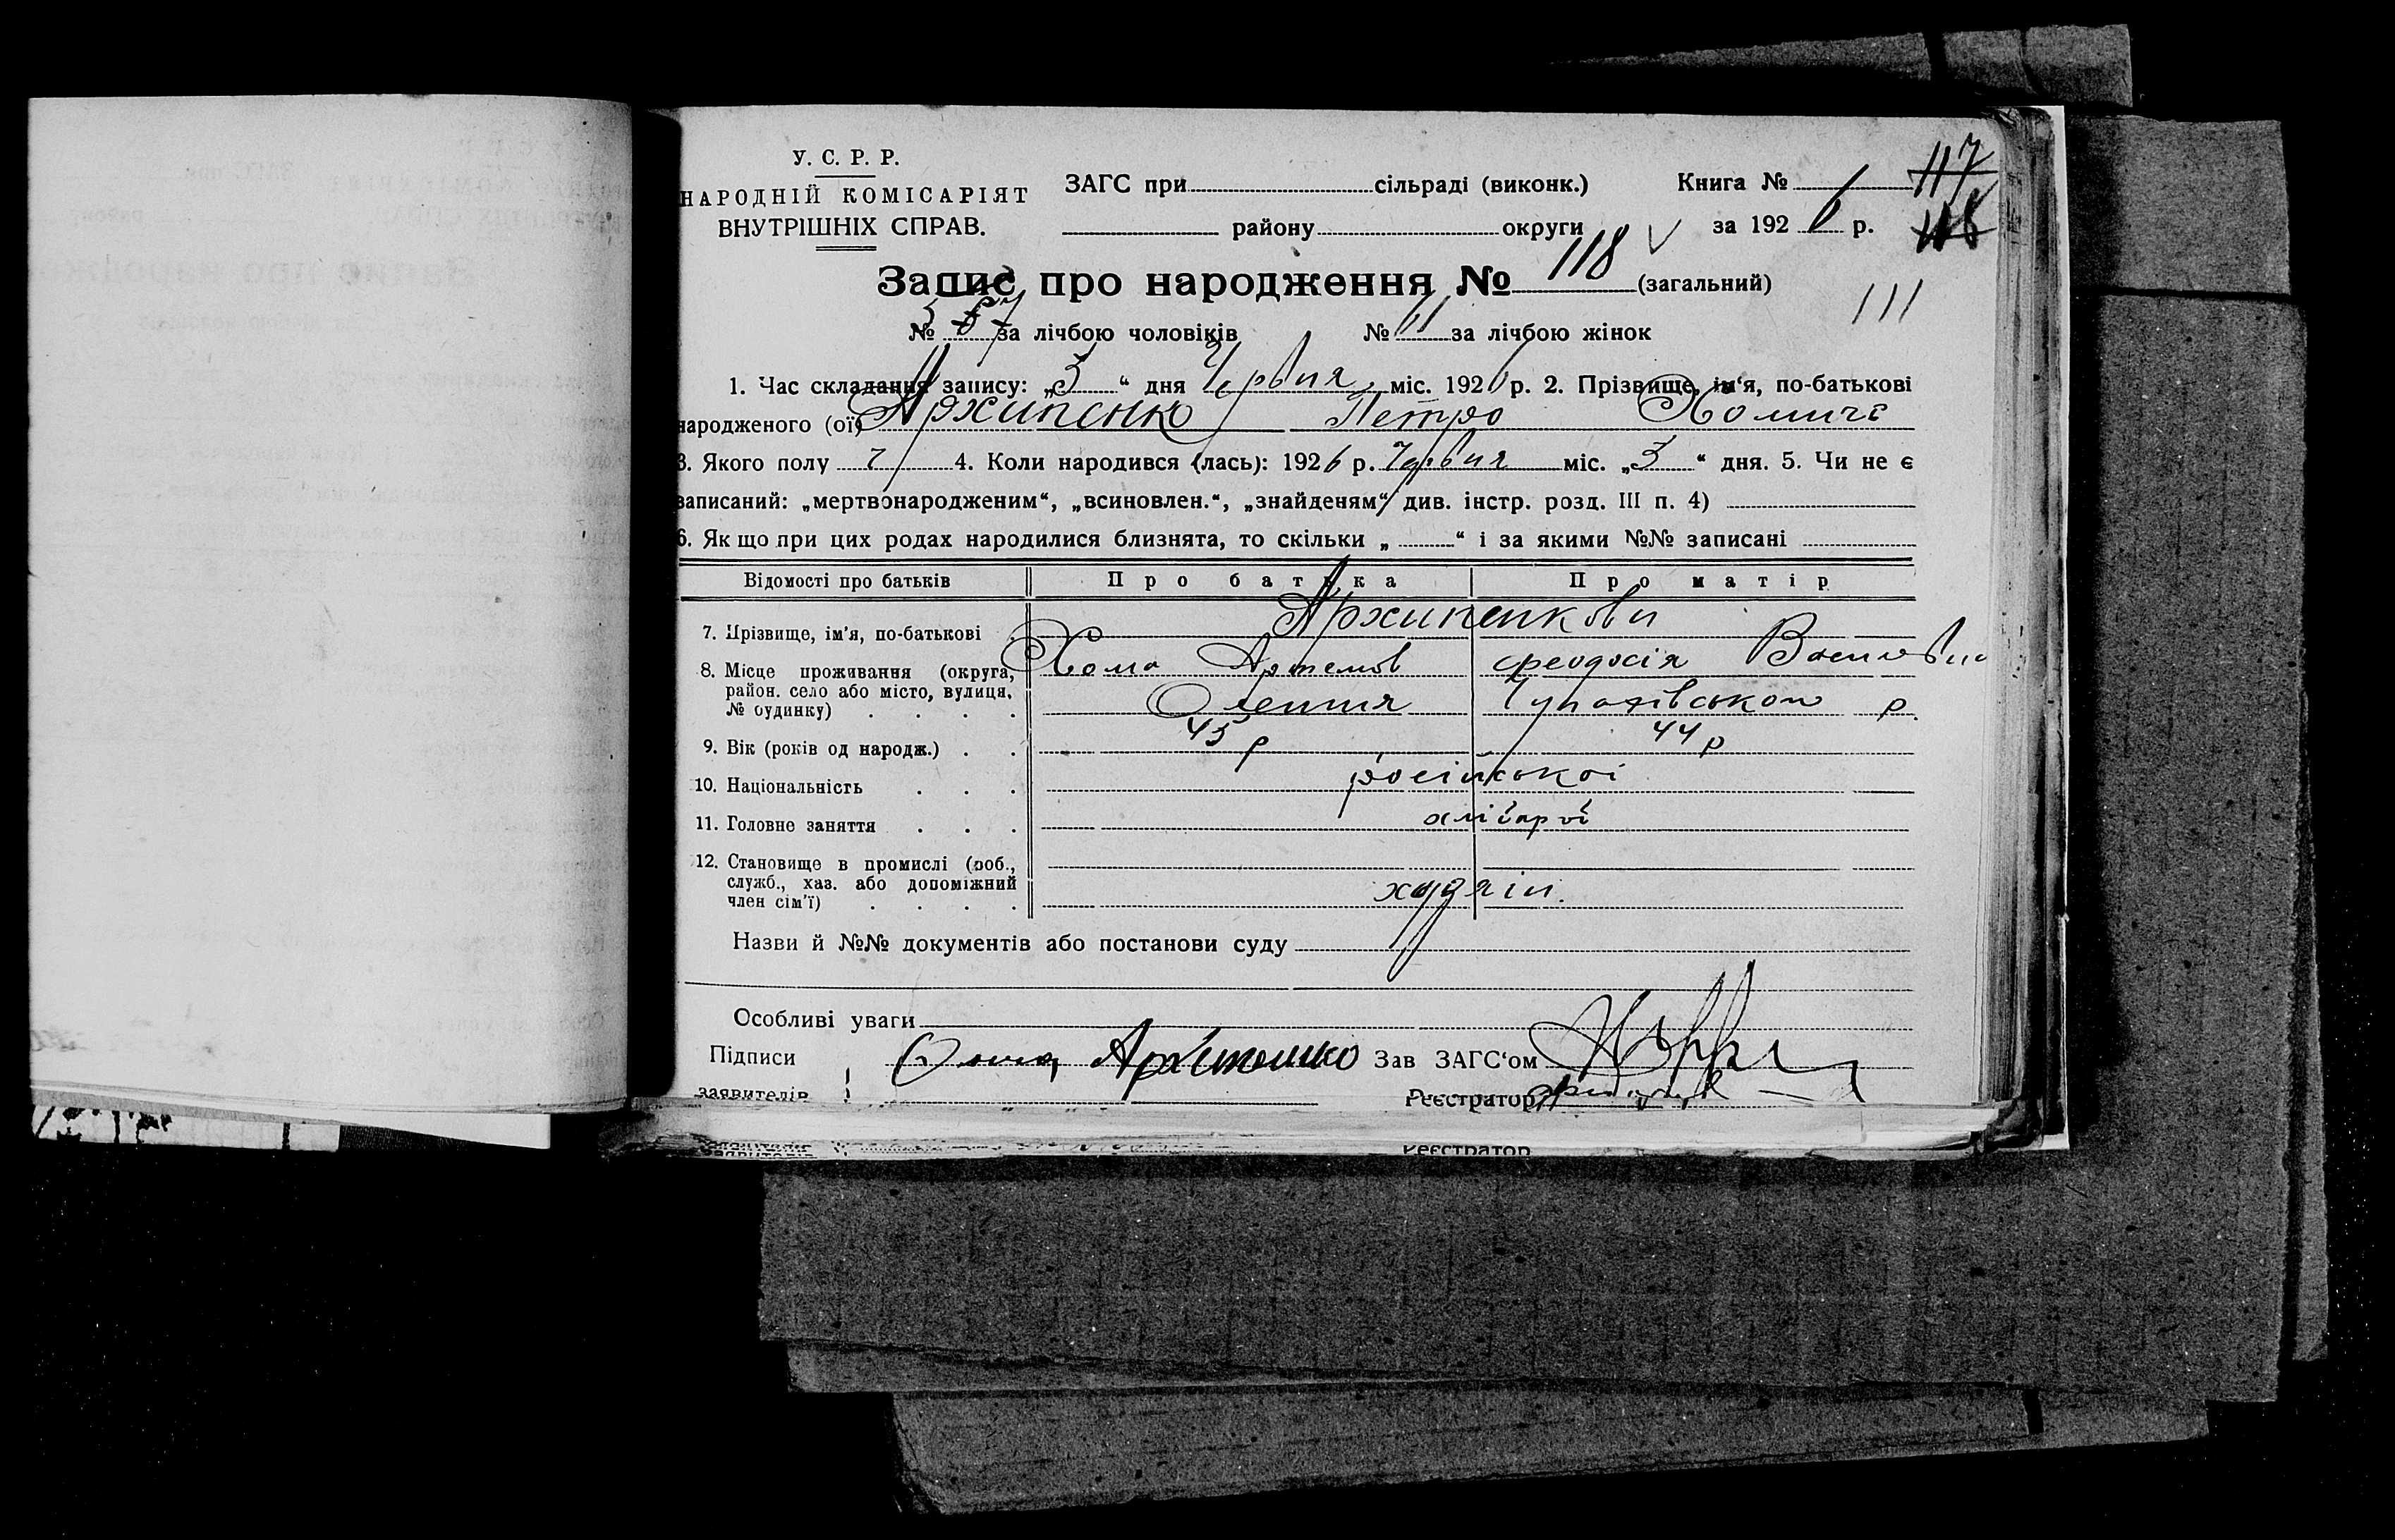 У. С. Р. Р.
НАРОДНІЙ КОМІСАРІЯТ
ВНУТРІШНІХ СПРАВ.
ЗАГС при сільраді (виконк.)
району округи
Книга № 117
за 1926 р. 118
Запис про народження № 118 (загальний)
111
№ 57 за лічбою чоловіків № 61 за лічбою жінок
1. Час складання запису: „3“ дня Червня міс. 1926 р. 2. Прізвище, ім‘я, по-батькові
народженого (ої) Архипенко Петро Хомич
3. Якого полу ч 4. Коли народився (лась): 1926 р. Червня міс. „3“ дня. 5. Чи не є
записаний: „мертвонародженим“, „всиновлен.“, „знайденям“ див. інстр. розд. III п. 4)
6. Якщо при цих родах народилися близнята, то скільки „ “ і за якими №№ записані
Відомості про батьків Про батька Про матір
Архипенкови
7. Прізвище, ім'я, по-батькові
Хома Артемов Феодосія
8. Місце проживання (округа,
район. село або місто, вулиця,
№ будинку)
Олешня Чупахівського р.
9. Вік (років од народж.) 45 р 44 р
10. Національність російської
11. Головне заняття хлібороб
12. Становище в промислі (роб.,
служб., хаз. або допоміжний
член сім'ї)
хазяїн.
Назви й №№ документів або постанови суду
Особливі уваги
Підписи
заявителів
Зав ЗАГС‘ом
Реєстратор
Реєстратор